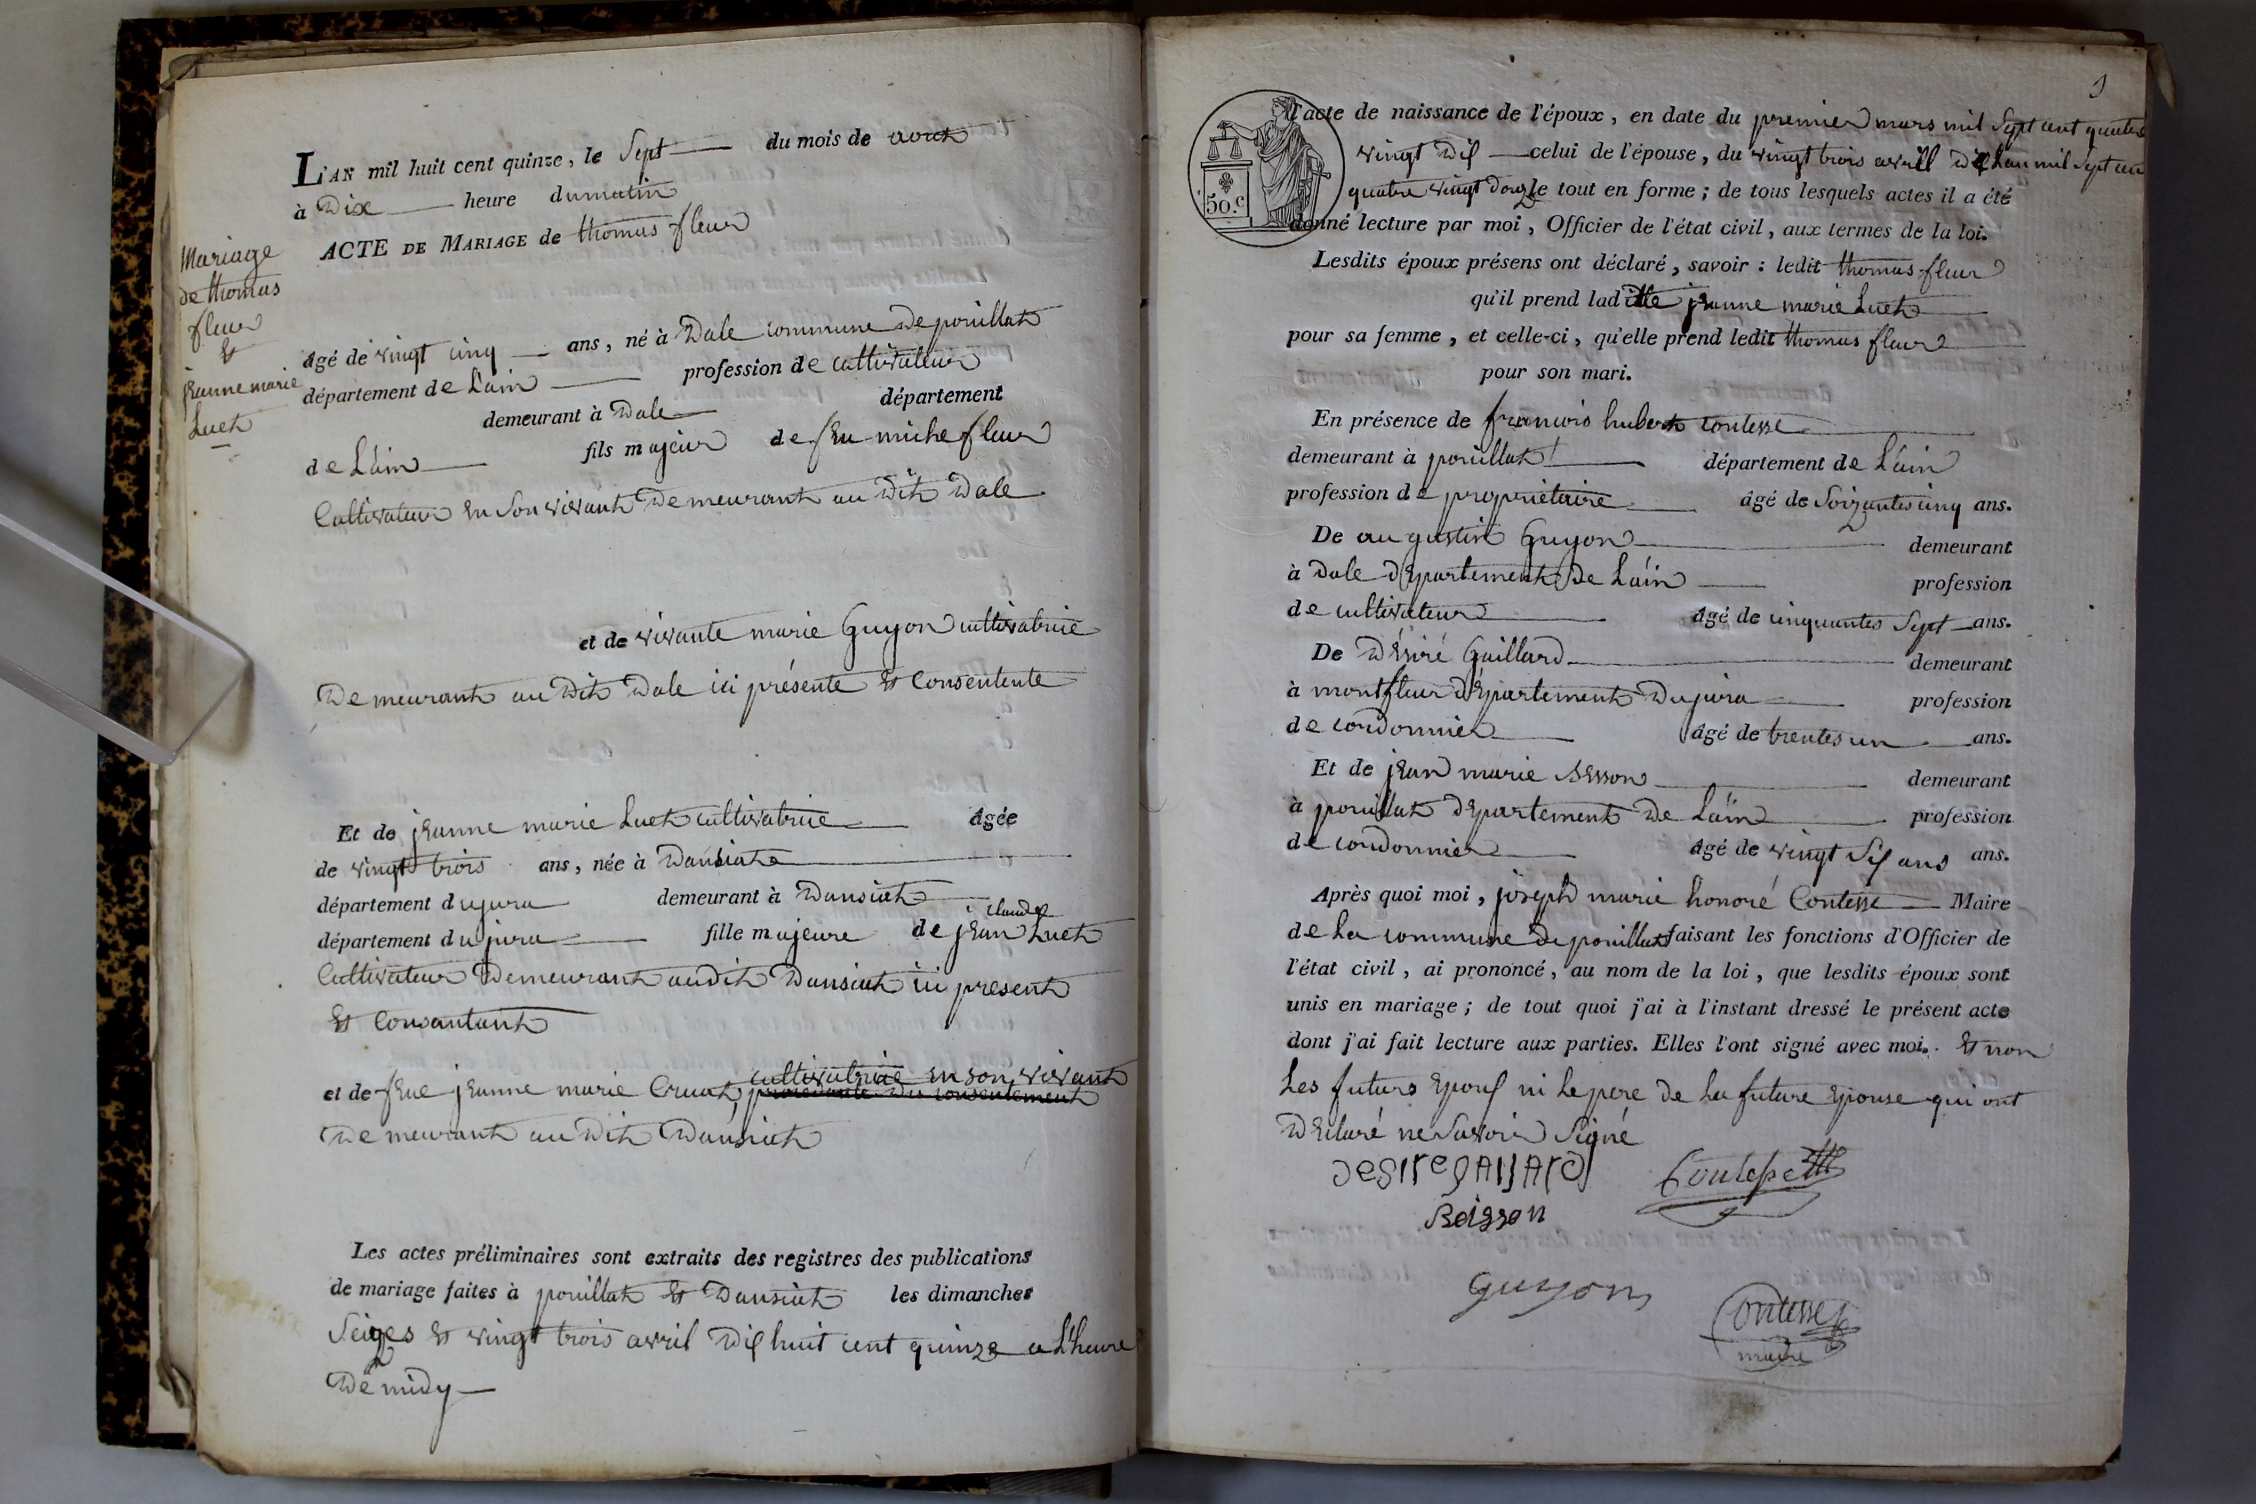 L'AN mil huit cent quinze, le Sept du mois de aout
à Dix heure du matin
ACTE DE MARIAGE de thomas fleur
Mariage
de thomas
fleur
Et
jeanne marie
Luet
âgé de vingt cinq ans, né à Dale commune de pouillat
département de L'ain profession de cultivateur
demeurant à Dale département
de L'ain fils majeur de feu miche fleur
Cultivateur En Son vivant Demeurant au Dit Dale
et de vivante marie Guyon cultivatrice
Demeurant au Dit Dale ici présente Et Consentente
Et de jeanne marie Luet cultivatrice âgée
de vingt trois ans, née à Dansiat
département du jura demeurant à Dansiat
claude
département du jura fille majeure de jean Luet
Cultivateur Demeurant audit Dansiat ici present
Et Consantant
cultivatrice en son vivant
et de feue jeanne marie Cruat, procedante du consentement
Demeurant au Dit Dansiat
Les actes préliminaires sont extraits des registres des publications
de mariage faites à pouillat Et Dansiat les dimanches
Seizes Et vingt trois avril Dix huit cent quinze a L'heure
De midy
1
50.c
l'acte de naissance de l'époux, en date du premier mars mil Sept cent quatre
vingt Dix celui de l'épouse, du vingt trois avril De L'an mil Sept cen
quatre vingt douze le tout en forme ; de tous lesquels actes il a été
donné lecture par moi, Officier de l'état civil, aux termes de la loi.
Lesdits époux présens ont déclaré, savoir : ledit thomas fleur
qu'il prend ladite jeanne marie Luet
pour sa femme, et celle-ci, qu'elle prend ledit thomas fleur
pour son mari.
En présence de francois hubert Contesse
demeurant à pouillat département de L'ain
profession de propriétaire âgé de Soizantes cinq ans.
De augustin Guyon demeurant
à Dale Département De L'ain profession
de cultivateur âgé de cinquantes Sept ans.
De Désiré Gaillard demeurant
à montfleur Département Du jura profession
de cordonnier âgé de trentes un ans.
Et de jean marie Besson demeurant
à pouillat Département De L'ain profession
de cordonnier âgé de vingt Six ans ans.
Après quoi moi, joseph marie honoré Contesse Maire
de La commune de pouillat faisant les fonctions d'Officier de
l'état civil, ai prononcé, au nom de la loi, que lesdits époux sont
unis en mariage ; de tout quoi j'ai à l'instant dressé le présent acte
dont j'ai fait lecture aux parties. Elles l'ont signé avec moi. Et non
Les futurs Epoux ni Le pere De La future Epouse qui ont
Déclaré ne Savoir Signé
Desire gaijard Contesse
Boisson
guyon
Contesse
maire